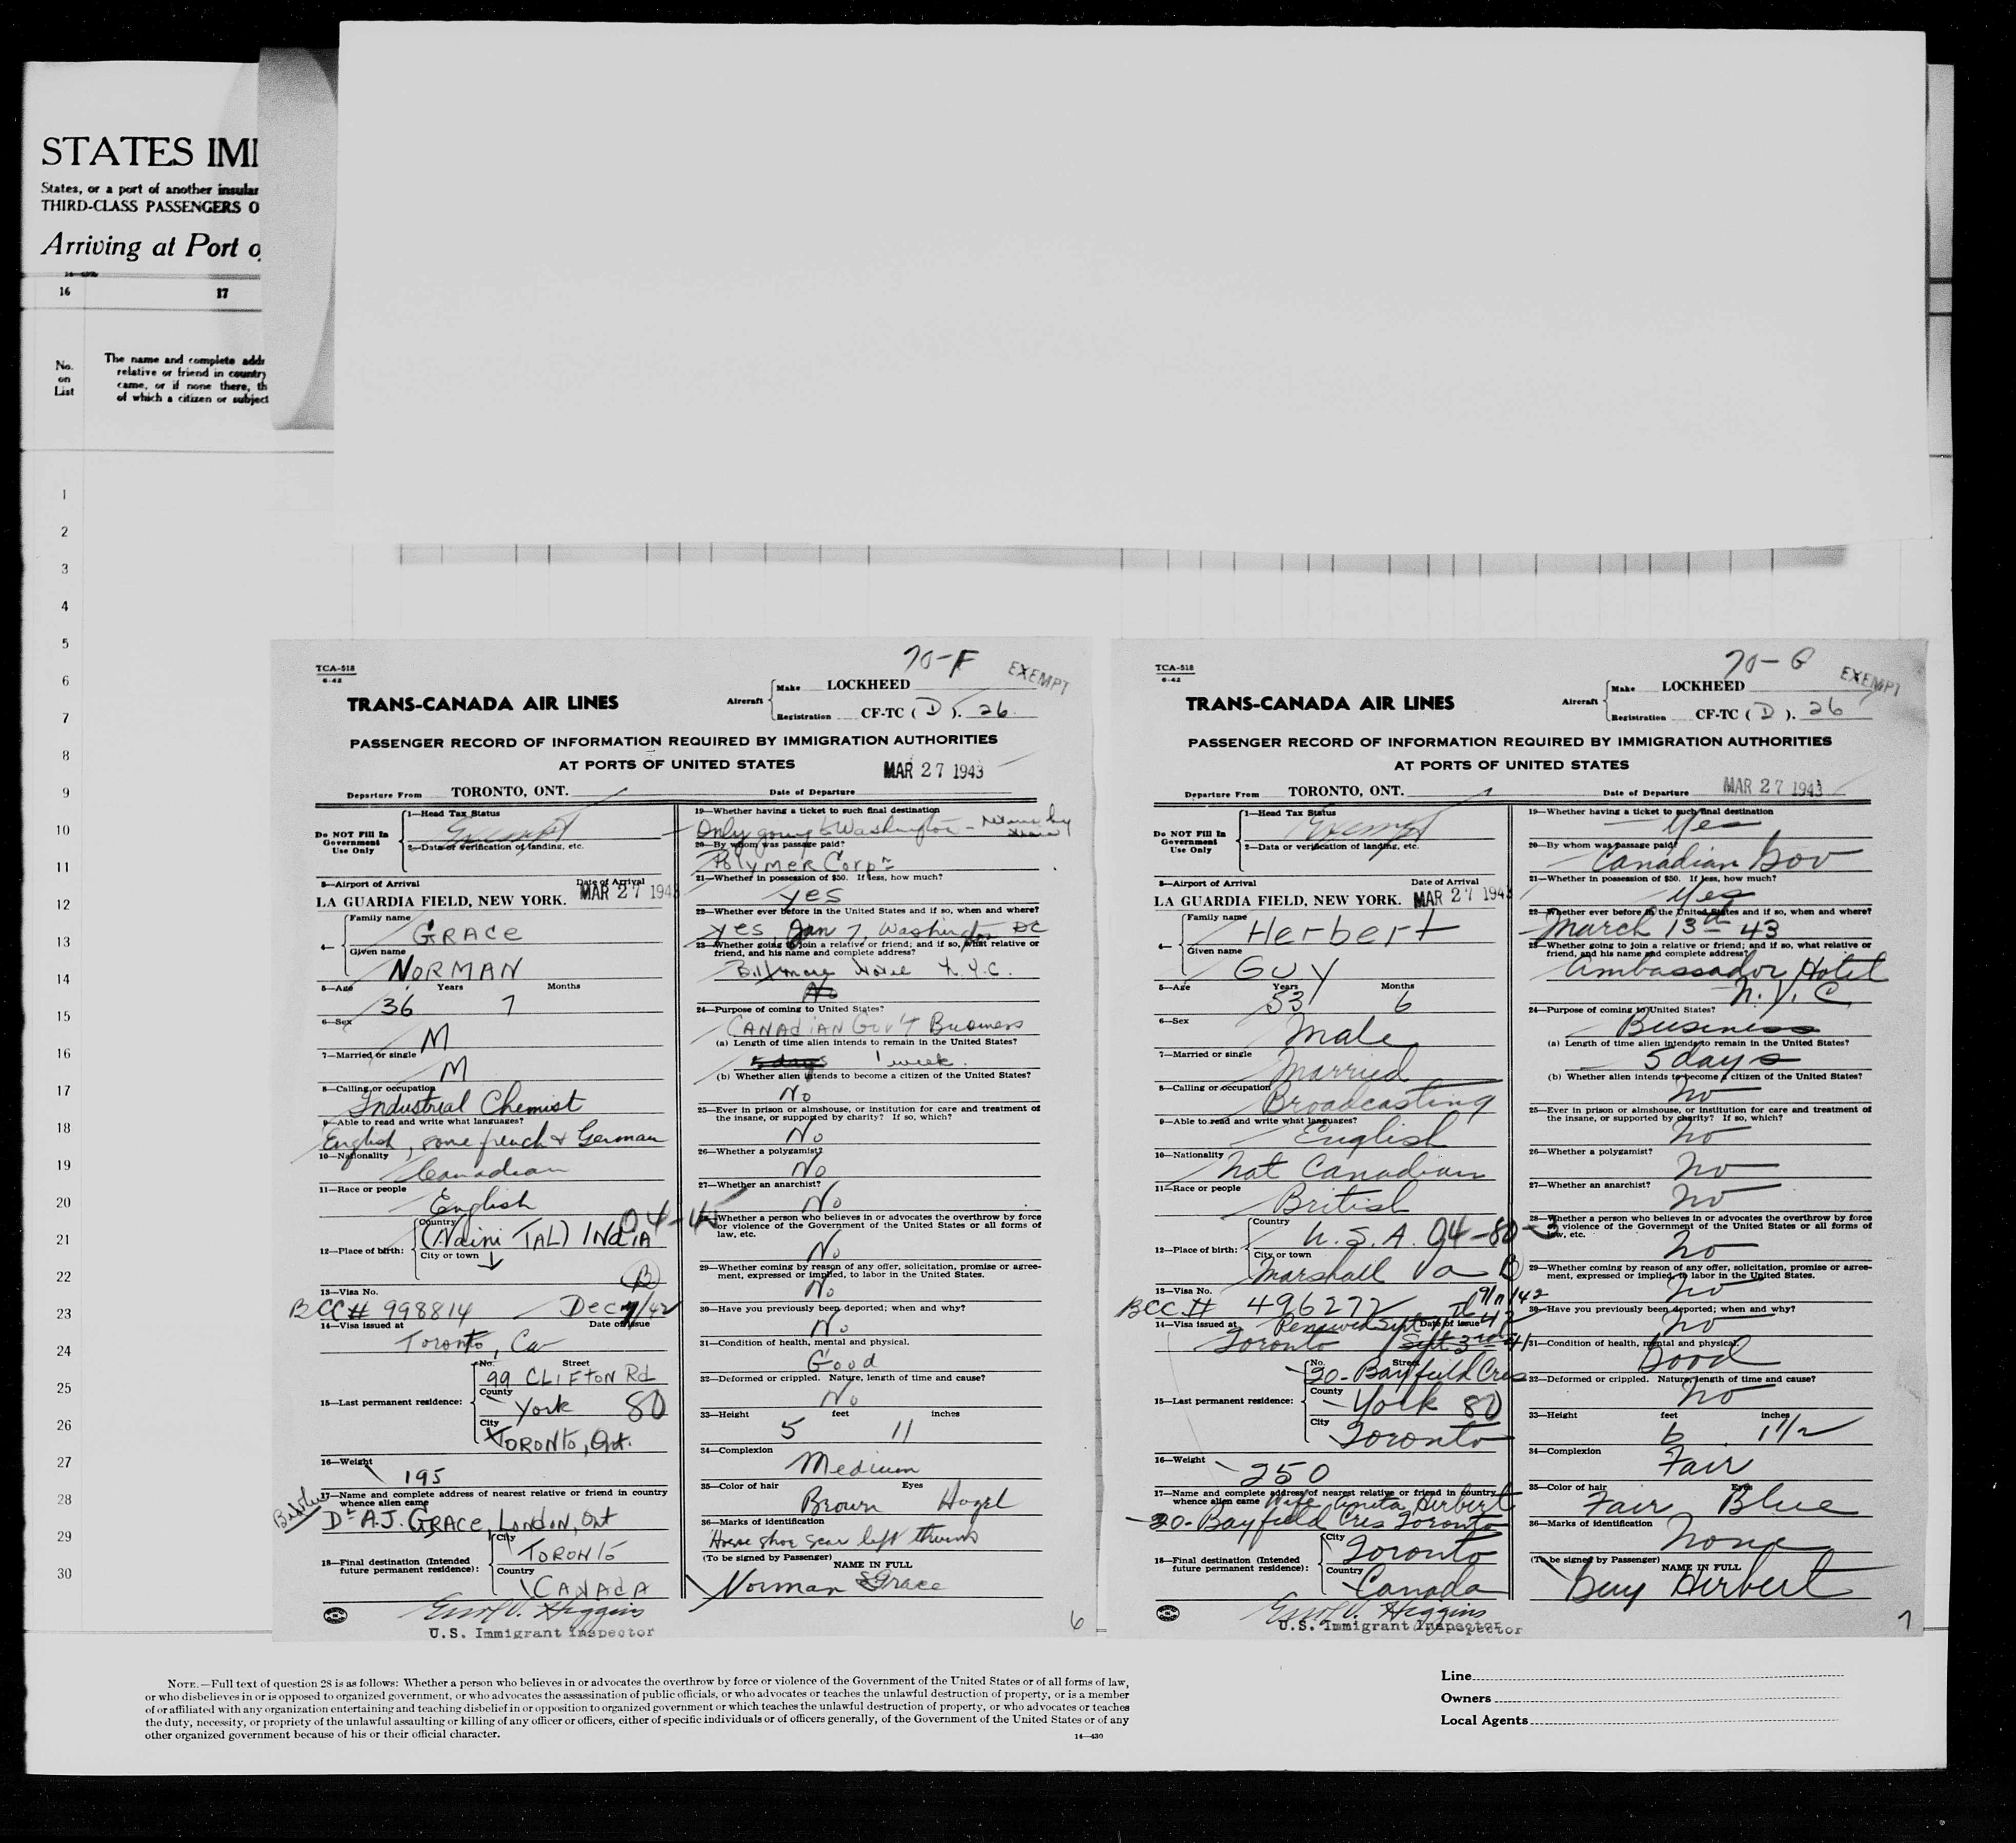 STATES IMI
States, or a port of another insular
THIRD-CLASS PASSENGERS O
Arriving at Port o
16 17
No.
on
List
The name and complete addr
relative or friend in country
came, or if none there, th
of which a citizen or subject
1
2
3
4
5
6
7
8
9
10
11
12
13
14
15
16
17
18
19
20
21
22
23
24
25
26
27
28
29
30
70-F
EXEMPT
TCA-518
6-42
TRANS-CANADA AIR LINES
Aircraft
Make LOCKHEED
Registration CF-TC ( D ). 26
PASSENGER RECORD OF INFORMATION REQUIRED BY IMMIGRATION AUTHORITIES
AT PORTS OF UNITED STATES
MAR 27 1943
Departure From TORONTO, ONT.
Date of Departure
Do NOT Fill In
Government
Use Only
1—Head Tax Status
Exempt
2—Data of verification of landing, etc.
3—Airport of Arrival
Date of Arrival
LA GUARDIA FIELD, NEW YORK. MAR 27 194
4—
Family name
GRACE
Given name
NORMAN
5—Age Years Months
36 7
6—Sex
M
7—Married or single
M
8—Calling or occupation
Industrial Chemist
9—Able to read and write what languages?
English, some french & German
10—Nationality
Canadian
11—Race or people
English
12—Place of birth:
Country
(Naini TAL) INdIA 04-4
City or town
B
13—Visa No.
BCC# 998814 Dec /42
14—Visa issued at Date of issue
Toronto, Ca
15—Last permanent residence:
No. Street
99 CLIFTON Rd
County
York 80
City
TORONTO, Ont.
16—Weight
195
17—Name and complete address of nearest relative or friend in country
whence alien came
Dr A.J. GRACE, LONDON, Ont
18—Final destination (Intended
future permanent residence):
City
TORONTO
Country
CANADA
Higgins
U.S. Immigrant Inspector
19—Whether having a ticket to such final destination
Only going to Washington - Return by
train
20—By whom was passage paid?
Polymer Corpn
21—Whether in possession of $50. If less, how much?
yes
22—Whether ever before in the United States and if so, when and where?
yes, Jan 7, Washington DC
23—Whether going to join a relative or friend; and if so, what relative or
friend, and his name and complete address?
Biltmore Hotel N.Y.C.
No
24—Purpose of coming to United States?
CANAdiAN Gov't Business
(a) Length of time alien intends to remain in the United States?
5 days 1 week.
(b) Whether alien intends to become a citizen of the United States?
No
25—Ever in prison or almshouse, or institution for care and treatment of
the insane, or supported by charity? If so, which?
No
26—Whether a polygamist?
No
27—Whether an anarchist?
No
Whether a person who believes in or advocates the overthrow by force
or violence of the Government of the United States or all forms of
law, etc.
No
29—Whether coming by reason of any offer, solicitation, promise or agree-
ment, expressed or implied, to labor in the United States.
No
30—Have you previously been deported; when and why?
No
31—Condition of health, mental and physical.
Good
32—Deformed or crippled. Nature, length of time and cause?
No
33—Height feet inches
5 11
34—Complexion
Medium
35—Color of hair Eyes
Brown Hazel
36—Marks of identification
Horse shoe scar left thumb
(To be signed by Passenger)
NAME IN FULL
Norman Grace
6
70-G
EXEMPT
TCA-518
6-42
TRANS-CANADA AIR LINES
Aircraft
Make LOCKHEED
Registration CF-TC ( D ). 26
PASSENGER RECORD OF INFORMATION REQUIRED BY IMMIGRATION AUTHORITIES
AT PORTS OF UNITED STATES
Departure From TORONTO, ONT.
Date of Departure MAR 27 1943
Do NOT Fill In
Government
Use Only
1—Head Tax Status
Exempt
2—Data of verification of landing, etc.
3—Airport of Arrival
Date of Arrival
LA GUARDIA FIELD, NEW YORK. MAR 27 194
4—
Family name
Herbert
Given name
GUY
5—Age Years Months
53 6
6—Sex
Male
7—Married or single
Married
8—Calling or occupation
Broadcasting
9—Able to read and write what languages?
English
10—Nationality
Nat Canadian
11—Race or people
British
12—Place of birth:
Country
U.S.A. 04-80-3
City or town
Marshall Va B
13—Visa No.
BCC # 496272 9/11/42
14—Visa issued at Date of issue
Renewed Sept 42
Toronto Sept 3rd 41
15—Last permanent residence:
No. Street
20- Bayfield Cres
County
York 80
City
Toronto
16—Weight
250
17—Name and complete address of nearest relative or friend in country
whence alien came Wife Anita Herbert
20- Bayfield Cres Toronto
18—Final destination (Intended
future permanent residence):
City
Toronto
Country
Canada
Higgins
U.S. Immigrant Inspector
19—Whether having a ticket to such final destination
Yes
20—By whom was passage paid?
Canadian Gov
21—Whether in possession of $50. If less, how much?
Yes
22—Whether ever before in the United States and if so, when and where?
March 13th 43
23—Whether going to join a relative or friend; and if so, what relative or
friend, and his name and complete address?
Ambassador Hotel
N.Y.C
24—Purpose of coming to United States?
Business
(a) Length of time alien intends to remain in the United States?
5 days
(b) Whether alien intends to become a citizen of the United States?
no
25—Ever in prison or almshouse, or institution for care and treatment of
the insane, or supported by charity? If so, which?
no
26—Whether a polygamist?
no
27—Whether an anarchist?
no
28—Whether a person who believes in or advocates the overthrow by force
or violence of the Government of the United States or all forms of
law, etc.
no
29—Whether coming by reason of any offer, solicitation, promise or agree-
ment, expressed or implied, to labor in the United States.
no
30—Have you previously been deported; when and why?
no
31—Condition of health, mental and physical.
Good
32—Deformed or crippled. Nature, length of time and cause?
no
33—Height feet inches
6 1 1/2
34—Complexion
Fair
35—Color of hair Eyes
Fair Blue
36—Marks of identification
None
(To be signed by Passenger)
NAME IN FULL
Guy Herbert
7
NOTE.—Full text of question 28 is as follows: Whether a person who believes in or advocates the overthrow by force or violence of the Government of the United States or of all forms of law,
or who disbelieves in or is opposed to organized government, or who advocates the assassination of public officials, or who advocates or teaches the unlawful destruction of property, or is a member
of or affiliated with any organization entertaining and teaching disbelief in or opposition to organized government or which teaches the unlawful destruction of property, or who advocates or teaches
the duty, necessity, or propriety of the unlawful assaulting or killing of any officer or officers, either of specific individuals or of officers generally, of the Government of the United States or of any
other organized government because of his or their official character.
14—430
Line
Owners
Local Agents